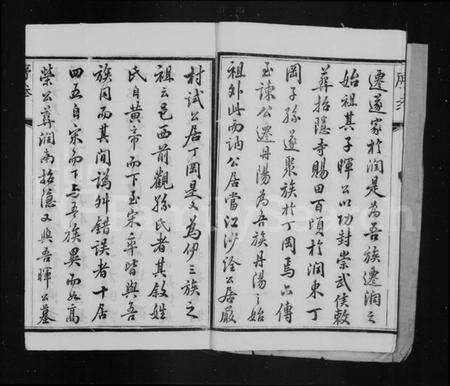 遷遂家於潤是為吾族遷潤之
始祖其子暉公以功封崇武侯敕
葬招隱寺賜田百頃於潤東丁
岡子孫遂聚族於丁岡焉六傳
至諫公遷丹陽為吾族丹陽之始
祖外此而訥公居嘗江沙淦公居嚴
村試公居丁岡是又為伊三族之
祖云邑西前觀孫氏者其敘姓
氏自黃帝而下至宋率皆與吾
族同而其間譌舛錯誤者十居
四五自宋而下與吾族異而如高
榮公葬潤南招隱又與吾暉公墓